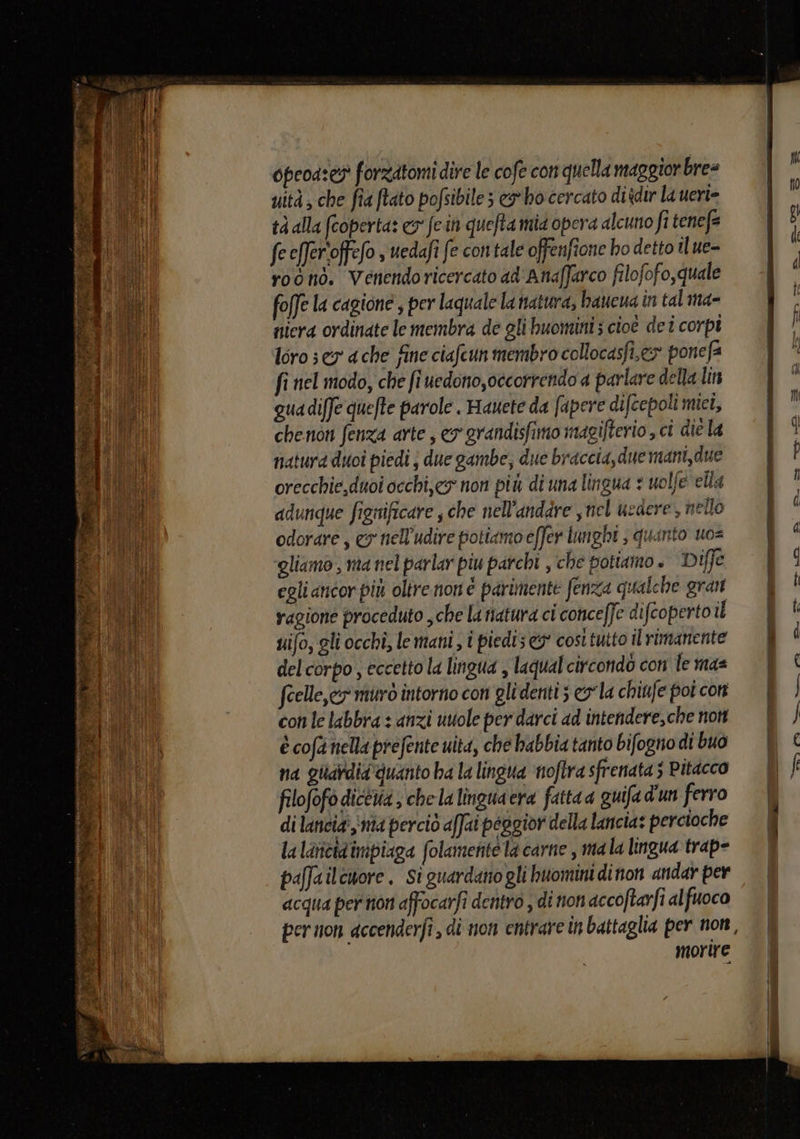 opeoa: & forzatomi dire le coſe con quella maggior bre=
uità, che ſia ſtato poſsibile; & ho cercato di dir la ueri=
tà alla ſcoperta: & ſe in queſta mia opera alcuno ſi teneſ=
ſe eſſer offeſo, uedaſi ſe con tale offenſione ho detto il ue=
ro ò nò. Venendo ricercato ad Anaſſarco filoſofo, quale
foſſe la cagione, per laquale la natura, haueua in tal ma=
niera ordinate le membra de gli huomini; cioè de i corpi
loro; & a che fine ciaſcun membro collocasſi, & poneſ=
ſi nel modo, che ſi uedono, occorrendo a parlare della lin
gua diſſe queſte parole. Hauete da ſapere diſcepoli miei,
che non ſenza arte, & grandisſimo magiſterio, ci diè la
natura duoi piedi, due gambe, due braccia, due mani, due
orecchie, duoi occhi, & non più di una lingua: uolſe ella
adunque ſignificare, che nell'andare, nel uedere, nello
odorare, & nell'udire potiamo eſſer lunghi, quanto uo=
gliamo, ma nel parlar piu parchi, che potiamo. Diſſe
egli ancor più oltre non è parimente ſenza qualche gran
ragione proceduto, che la natura ci conceſſe diſcoperto il
uiſo, gli occhi, le mani, i piedi; & cosi tutto il rimanente
del corpo, eccetto la lingua, laqual circondò con le ma=
ſcelle, & murò intorno con gli denti; & la chiuſe poi con
con le labbra: anzi uuole per darci ad intendere, che non
è coſa nella preſente uita, che habbia tanto biſogno di buo
na guardia quanto ha la lingua noſtra sfrenata; Pitacco
filoſofo diceua, che la lingua era fatta a guiſa d'un ferro
di lancia, ma perciò aſſai peggior della lancia: percioche
la lancia impiaga ſolamente la carne, ma la lingua trap=
paſſa il cuore. Si guardano gli huomini di non andar per
acqua per non affocarſi dentro, di non accoſtarſi al fuoco
per non accenderſi, di non entrare in battaglia per non,
morire